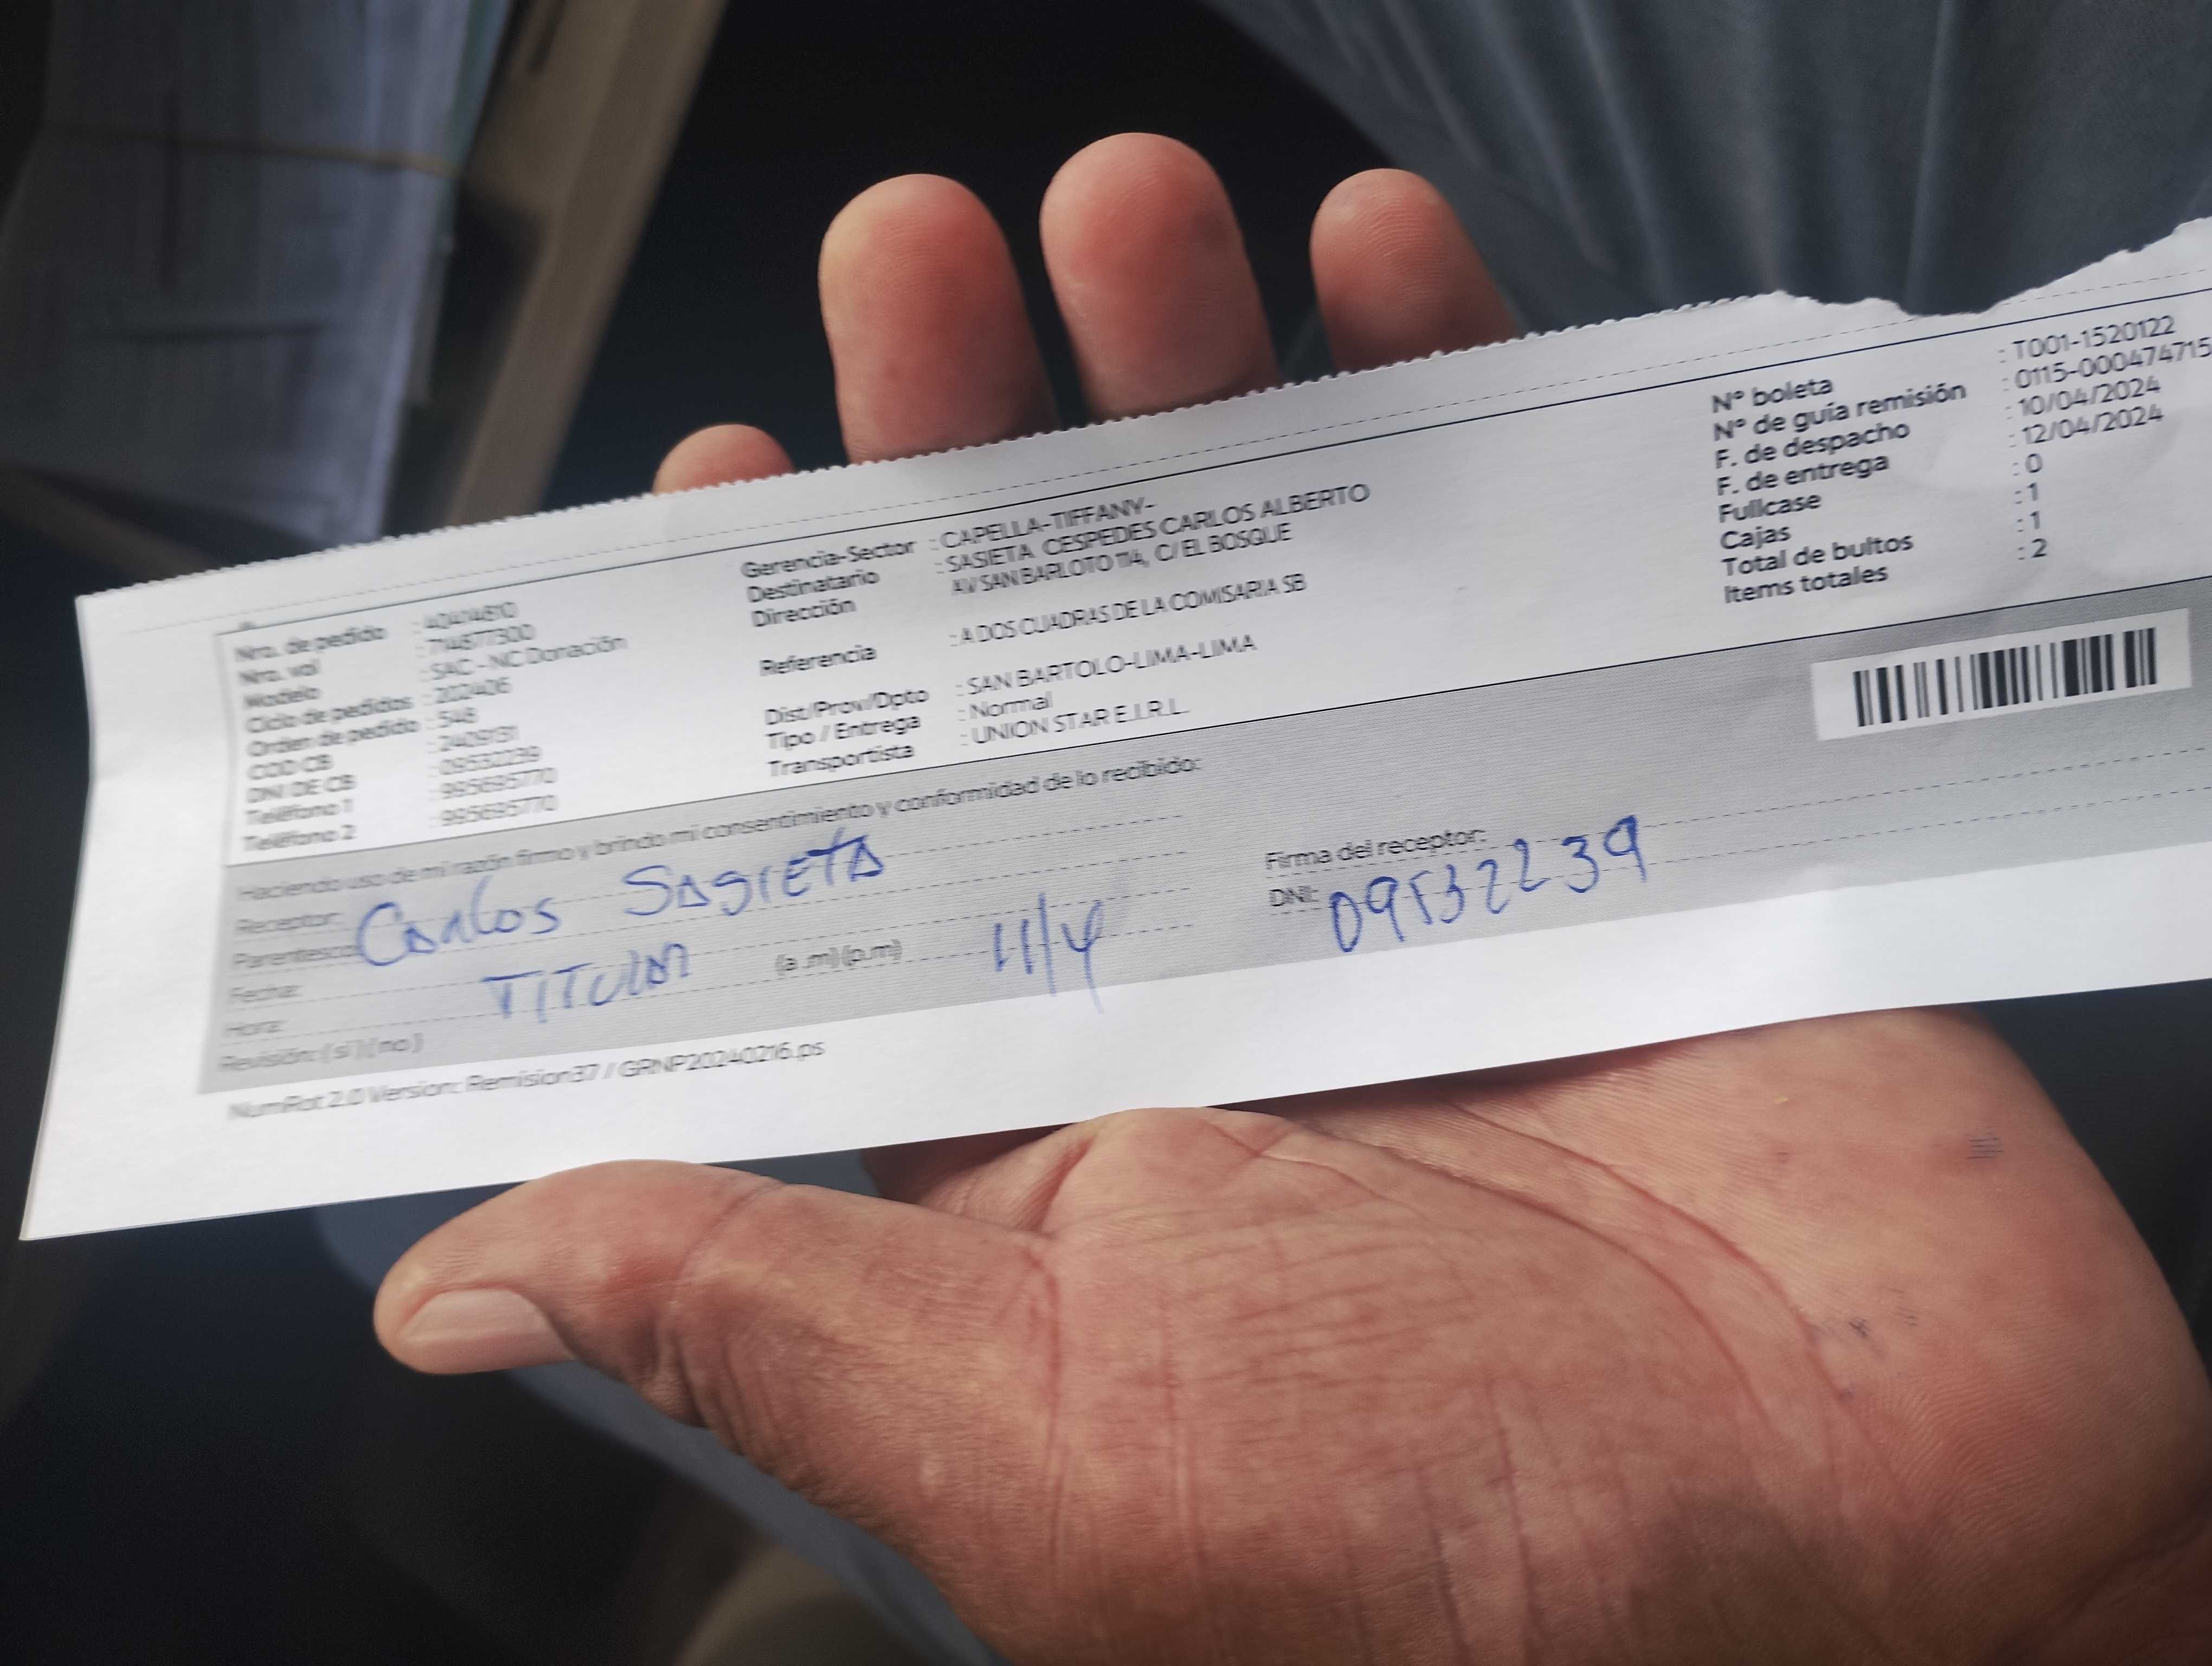 Nro. de pedido : 40414810
Nro. val : 714877300
Modelo : SAC - NC Donación
Ciclo de pedidos : 202406
Orden de pedido : 548
COD CB : 2409131
DNI DE CB : 09532239
Teléfono 1 : 995695770
Teléfono 2 : 995695770
Gerencia-Sector : CAPELLA-TIFFANY-
Destinatario : SASIETA CESPEDES CARLOS ALBERTO
Dirección AV SAN BARLOTO 114, C/ EL BOSQUE
Referencia : A DOS CUADRAS DE LA COMISARIA SB
Dist/Prov/Dpto : SAN BARTOLO-LIMA-LIMA
Tipo / Entrega : Normal
Transportista : UNION STAR E.I.R.L.
N° boleta : T001-1520122
N° de guía remisión : 0115-000474715
F. de despacho : 10/04/2024
F. de entrega : 12/04/2024
Fullcase : 0
Cajas : 1
Total de bultos : 1
Items totales : 2
Haciendo uso de mi razón firmo y brindo mi consentimiento y conformidad de lo recibido:
Receptor: Carlos Sasieta
Parentesco:
Fecha: TITULAR (a.m)(p.m) 11/4
Hora:
Revisión: ( si ) ( no )
Firma del receptor:
DNI: 09532239
NumRot 2.0 Version: Remision37 / GRNP20240216.ps